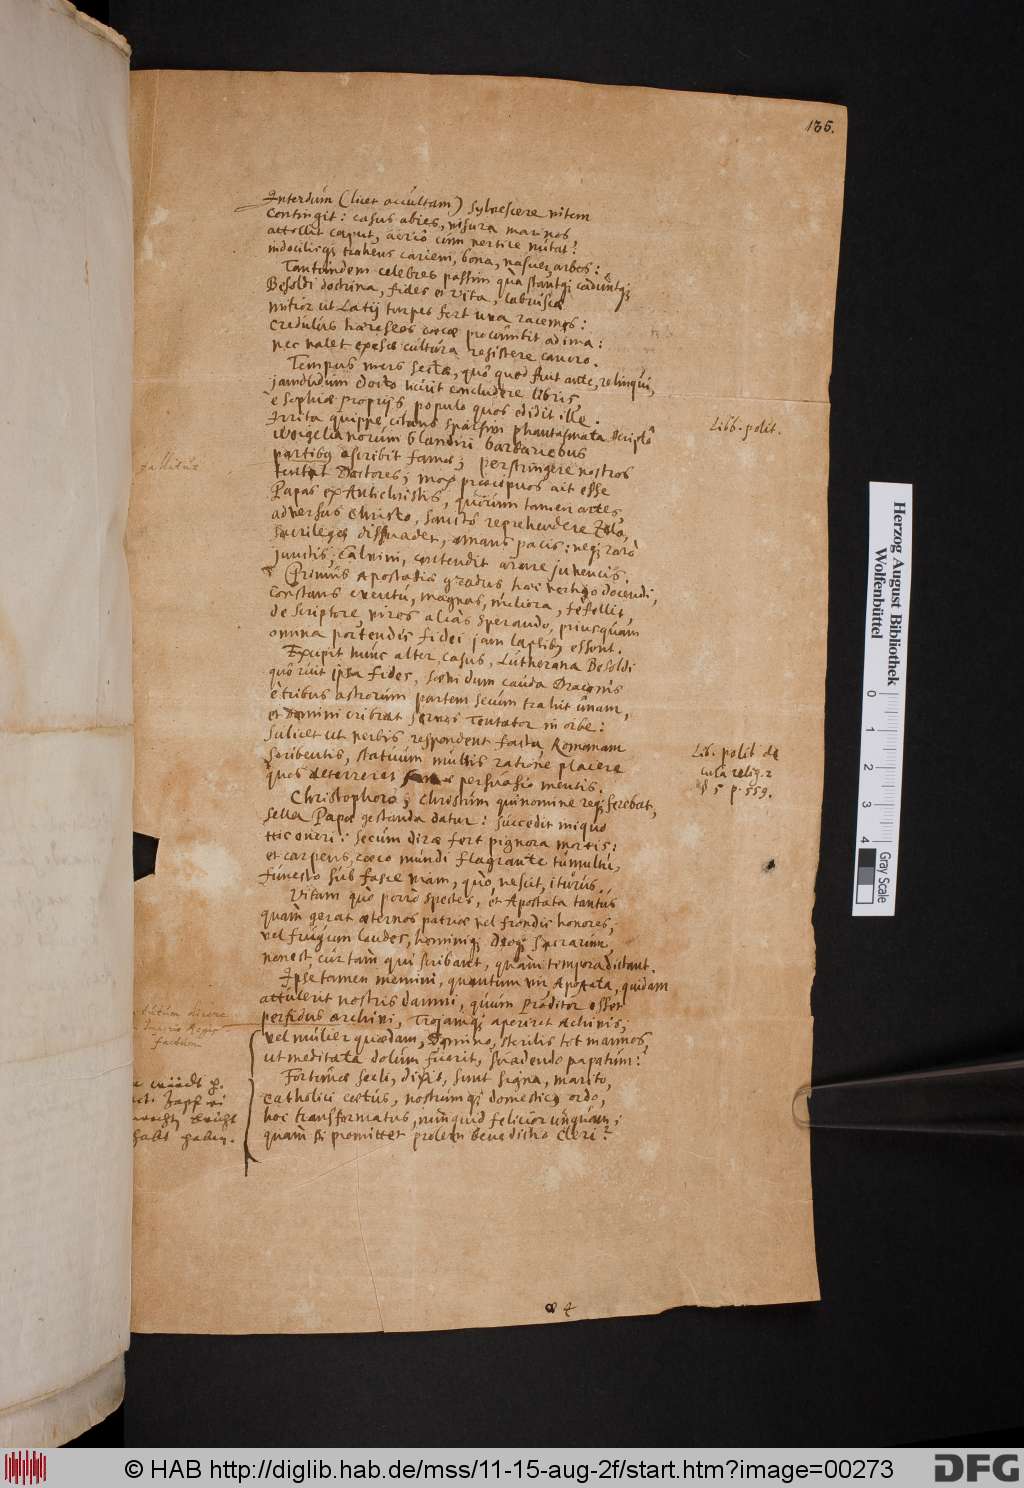 135.
Interdum (licet occultam) sylvescere vitem
contingit: casus abies, visura marinos
attollit caput, aerio cum vertice nutat:
indocilisq; trahens cariem, bona, nascz, arbos:
Tantundem celebres passim quà stantq; caduntq;
Besoldi doctrina, fides et vita, labrusca
mitior ut Latij turpes fert uva racemos:
credulus haereseos caecae procumbit ad ima:
nec valet exesae cultura resistere cancro.
Tempus mers sectae, quô quod fuit ante, relinqui,
jamdudum docto licuit concludere libris
è Sophiae proprijs populo quos edidit ille.
Irrita quippe, citans sparsim phantasmata scriptô
Weigelianorum blandiri barbariebus
partibus ascribit famae; perstringere nostros
tentat Doctores; mox praecipuos ait esse
Papas ex Antichristis, quorum tamen artes,
adversus Christo, sanctô reprehendere Zelo,
sacrilegos dissuadet, amans pacis: neq; rarò
junctis Calvini, contendit arare juvencis.
Primus Apostasiae gradus haec vertigo docendi,
constans eventu, magnas, meliora, fefellit,
de scriptore, viros alias sperando, priusquam
omnia portendis fidei jam lapsibus essent.
Excipit hunc alter, casus, Lutherana Besoldi
quô ruit ipsa fides, saevi dum cauda Draconis
è tribus astrorum partem secum trahit unam,
et Domini cribrat servos Tentator in orbe:
scilicet ut verbis respondent facta, Romanam
scribentis, statuum multis ratione placere
quos deterreret persuasio mentis.
Christophorô; Christum qui nomine req; ferebat,
sella Papae gestanda datur: succedit iniquo
hic oneri: secum dirae fert pignora mortis:
et carpens, caeco mundi flagrante tumultu,
funesto sub fasce viam, quò, nescit, iturus.
Vitam quò porrò spectes, et Apostata tantus
quam gerat aeternos patriae vel frondis honores,
vel frugum laudes, hominiq; Deoq; sacrarum,
non est, cur tam qui scribant, quam tempora dictant.
Ipse tamen memini, quantum vir Apostata, quidam
attulerit nostris damni, quum proditor esset
perfidus archivi, Trojamq; aperiret Achivis;
vel mulier quaedam, Domino, sterilis tot mannos
ut meditata dolum fuerit, suadendo papatum:
Fortunae secli, dixit, sunt signa, marito,
catholici coetus, nostrumq; domesticus ordo,
hoc transformatus, numquid felicior unquam;
quam si promittet prolem benedictio Cleri?
Libb. polit.
Lib. polit de
cura relig. 2
§ 5 p. 559.
fallitur
dicere
factum
Herzog August Bibliothek
Wolfenbüttel
0 1 2 3 4
Gray Scale
© HAB http://diglib.hab.de/mss/11-15-aug-2f/start.htm?image=00273
DFG